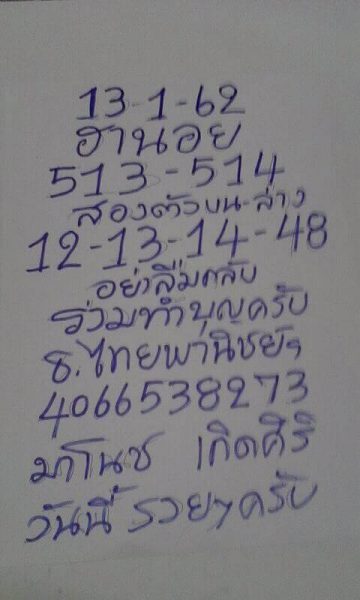 13-1-62
ฮานอย
513-514
สองตัวบน-ล่าง
12-13-14-48
อย่าลืมกลับ
ร่วมทำบุญครับ
ธ.ไทยพานิชย์ฯ
4066538273
มาโนช เกิดศิริ
วันนี้ รวยๆครับ